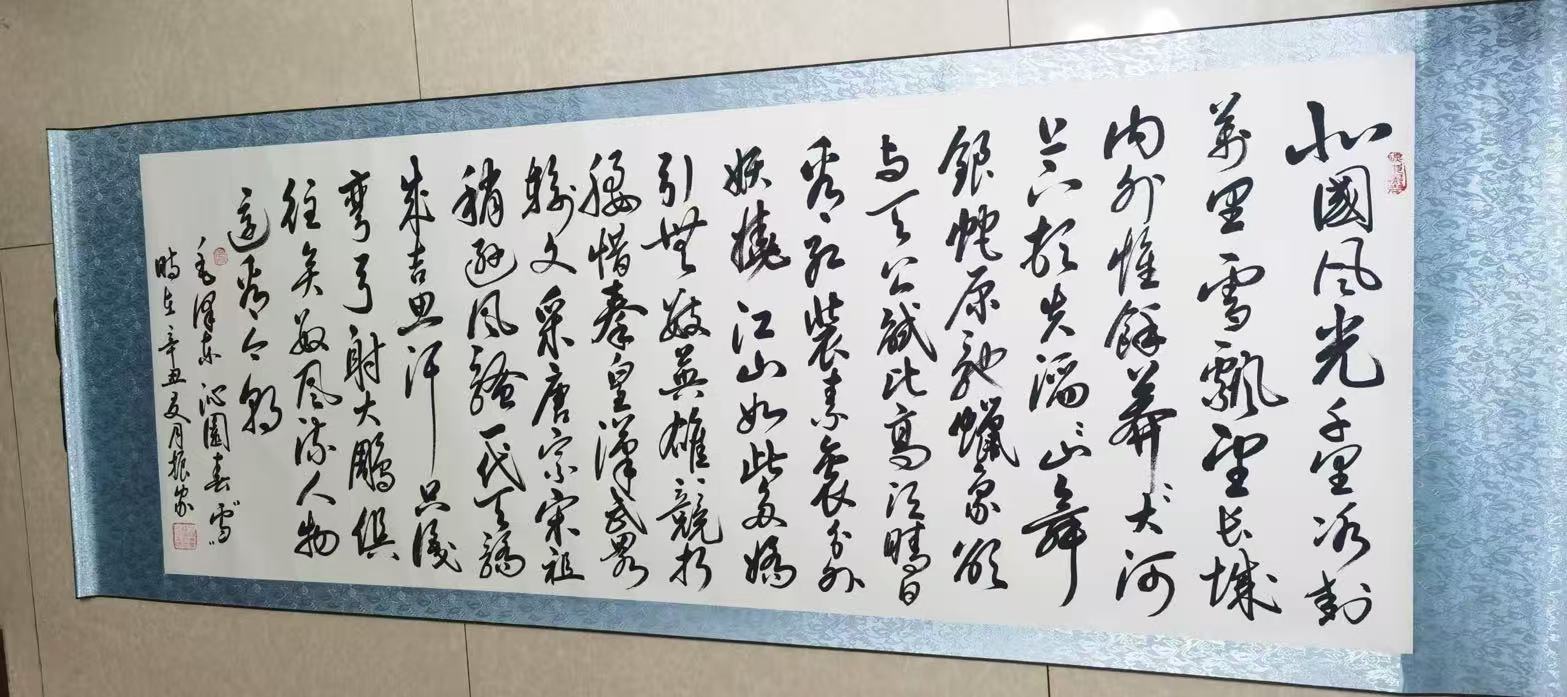 北國風光千里冰封
萬里雪飄望長城
内外惟餘莽〻大河
上下頓失滔〻山舞
銀蛇原馳蠟象欲
与天公試比高須晴日
看紅裝素裹分外
妖嬈江山如此多嬌
引無數英雄競折
腰惜秦皇漢武畧
輸文采唐宗宋祖
稍遜風騷一代天驕
成吉思汗只識
彎弓射大鵰俱
往矣數風流人物
還看今朝
毛澤東沁園春"雪"
時在辛丑夏月振家